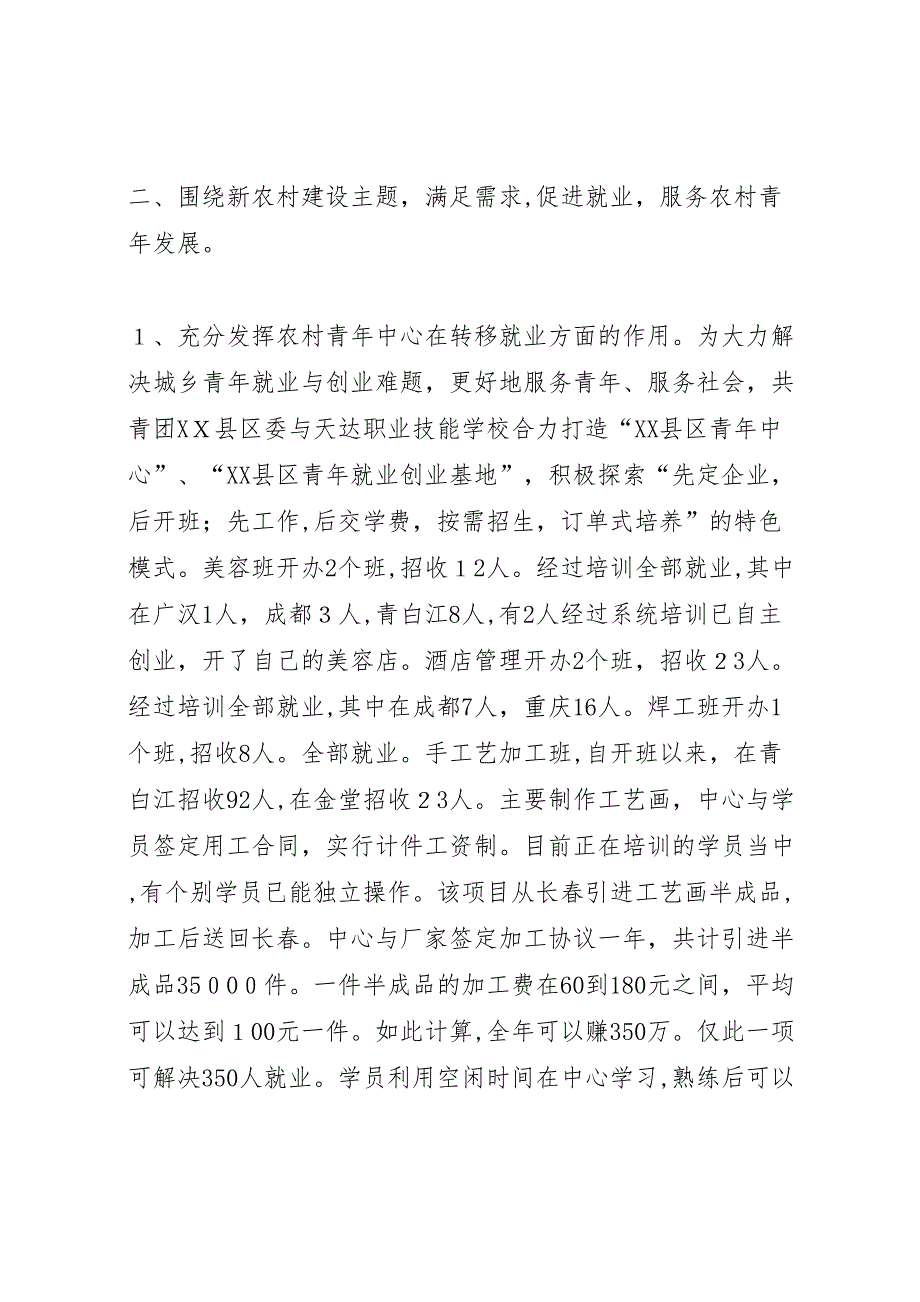 二、围绕新农村建设主题，满足需求,促进就业，服务农村青
年发展。
１、充分发挥农村青年中心在转移就业方面的作用。为大力解
决城乡青年就业与创业难题，更好地服务青年、服务社会，共
青团XＸ县区委与天达职业技能学校合力打造“XX县区青年中
心”、“XX县区青年就业创业基地”，积极探索“先定企业，
后开班；先工作,后交学费，按需招生，订单式培养”的特色
模式。美容班开办2个班,招收１2人。经过培训全部就业,其中
在广汉1人，成都３人,青白江8人,有2人经过系统培训已自主
创业，开了自己的美容店。酒店管理开办2个班，招收２3人。
经过培训全部就业,其中在成都7人，重庆16人。焊工班开办1
个班,招收8人。全部就业。手工艺加工班,自开班以来，在青
白江招收92人,在金堂招收２3人。主要制作工艺画，中心与学
员签定用工合同，实行计件工资制。目前正在培训的学员当中
,有个别学员已能独立操作。该项目从长春引进工艺画半成品,
加工后送回长春。中心与厂家签定加工协议一年，共计引进半
成品35０００件。一件半成品的加工费在60到180元之间，平均
可以达到１00元一件。如此计算,全年可以赚350万。仅此一项
可解决350人就业。学员利用空闲时间在中心学习,熟练后可以